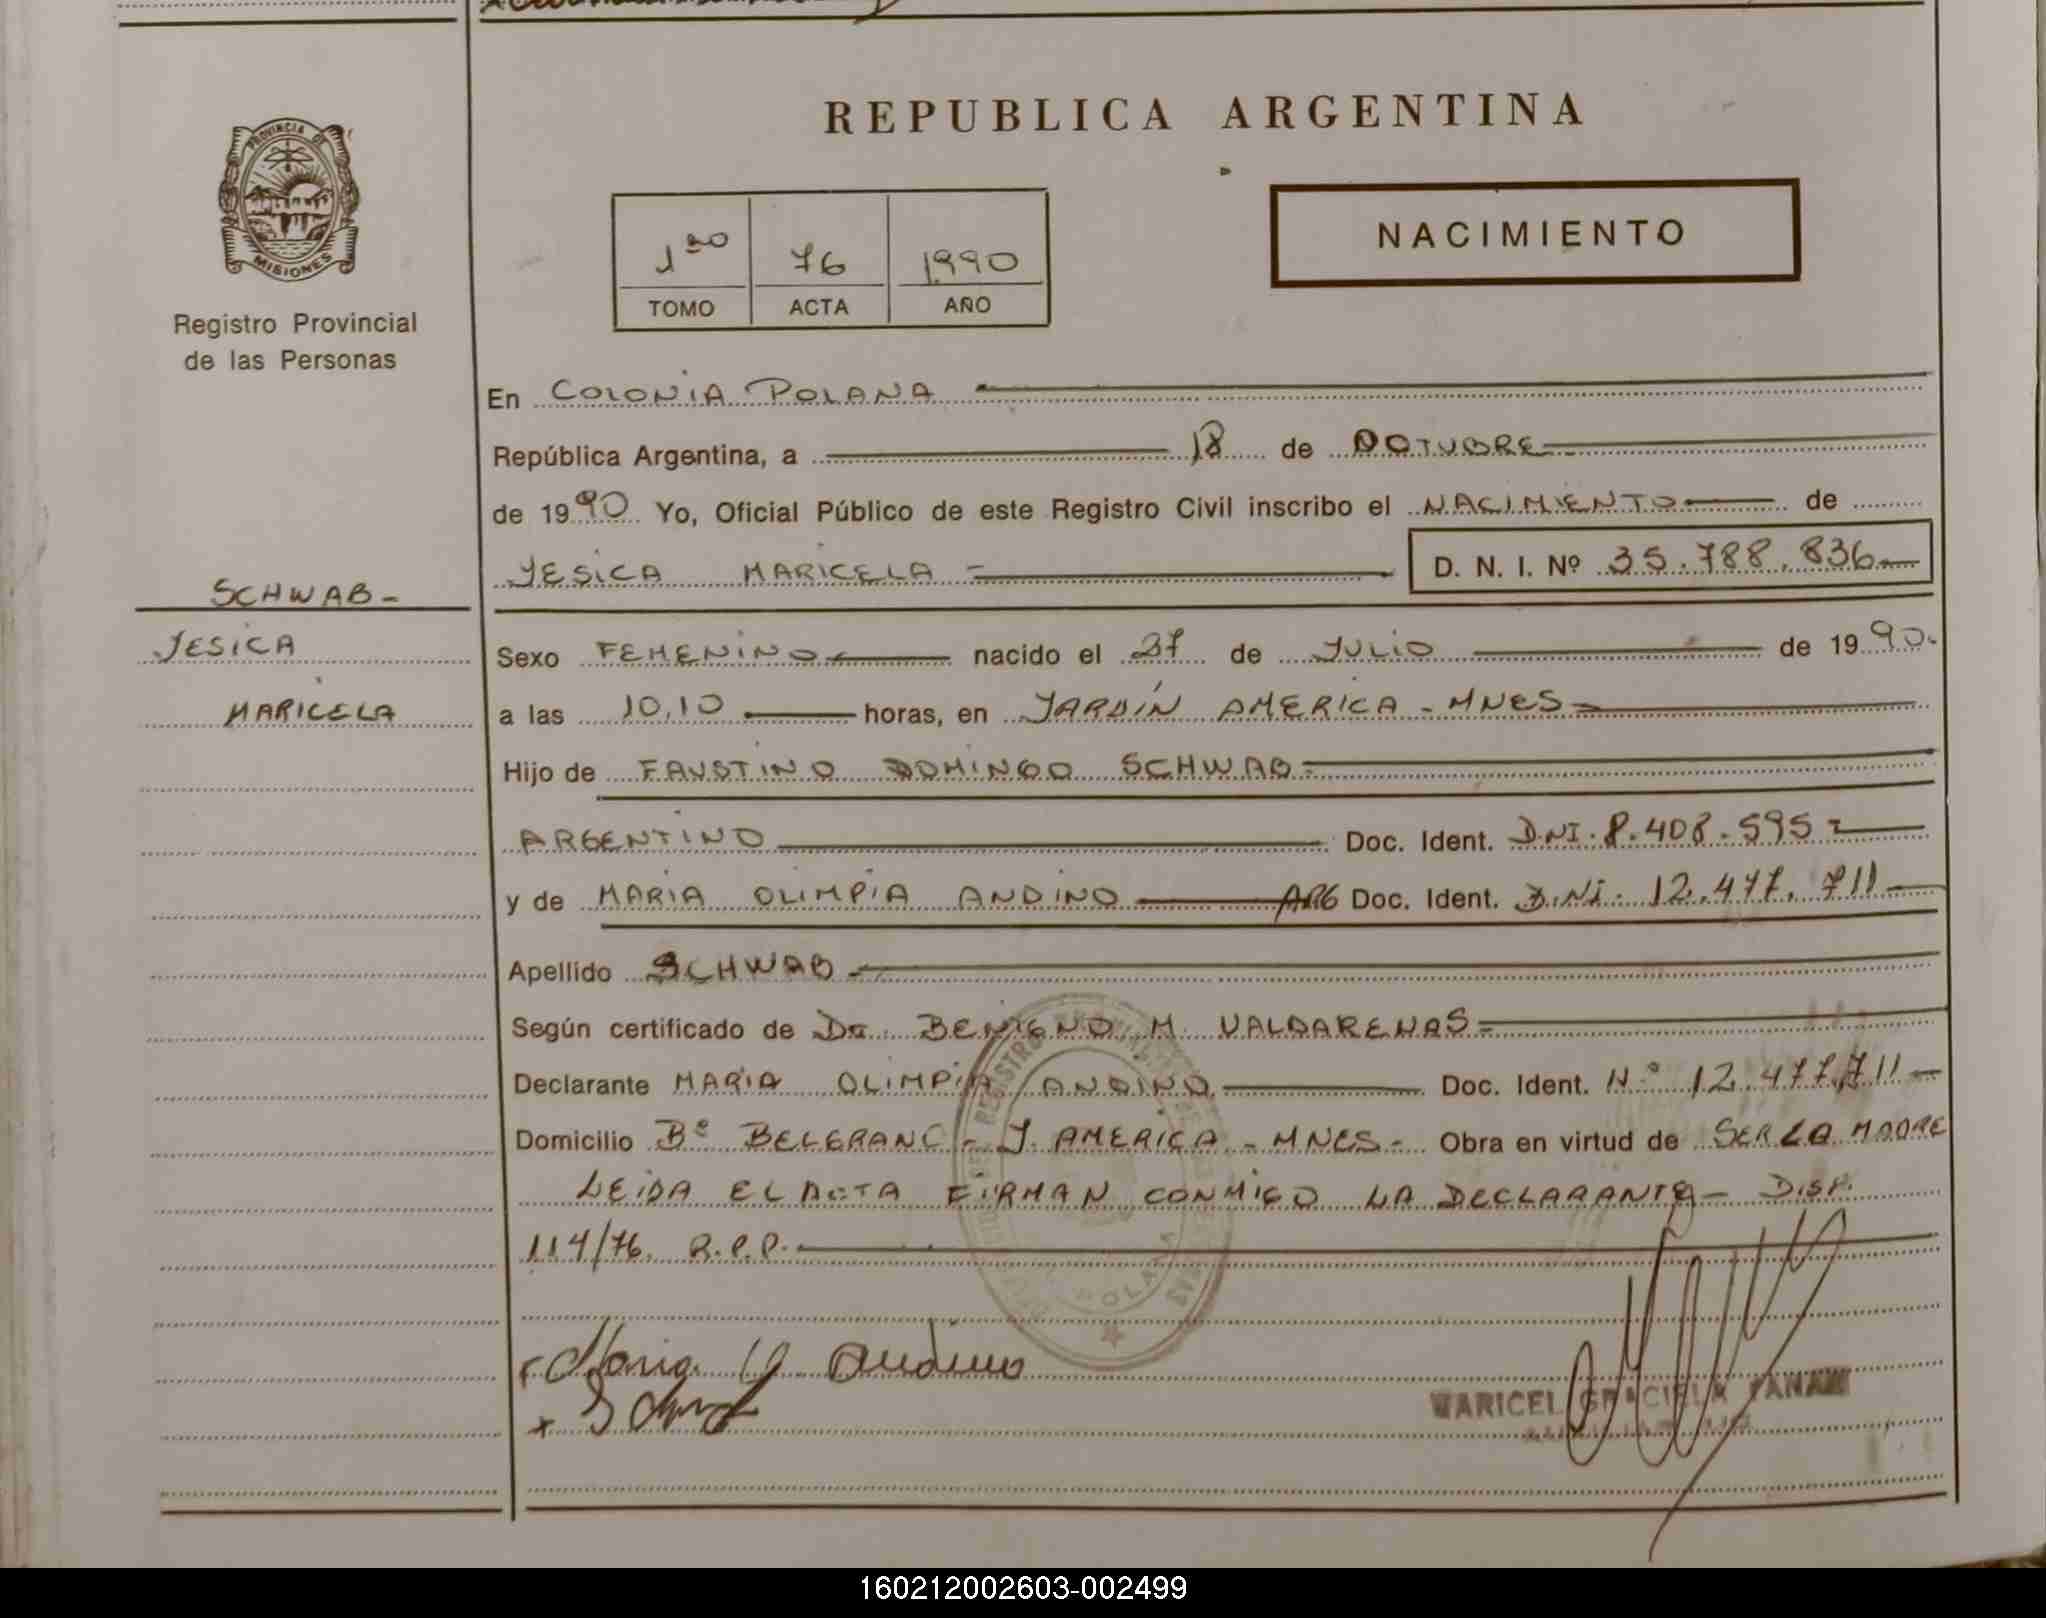 REPUBLICA ARGENTINA
PROVINCIA DE
MISIONES
Registro Provincial
de las Personas
1ro 76 1990
TOMO ACTA AÑO
NACIMIENTO
En COLONIA POLANA
República Argentina, a 18 de OCTUBRE
de 1990 Yo, Oficial Público de este Registro Civil inscribo el NACIMIENTO de
YESICA MARICELA - D. N. I. Nº 35.788.836
SCHWAB-
YESICA
MARICELA
Sexo FEMENINO nacido el 27 de JULIO de 1990.
a las 10,10 horas, en JARDÍN AMERICA - MNES-
Hijo de FAUSTINO DOMINGO SCHWAB-
ARGENTINO Doc. Ident. DNI. 8.408.595-
y de MARIA OLIMPIA ANDINO ARG Doc. Ident. D.NI. 12.477.711-
Apellido SCHWAB-
Según certificado de Dr. BENIGNO M.
Declarante MARIA OLIMPIA ANDINO Doc. Ident. Nº 12.477.711-
Domicilio Bº BELGRANO - J. AMERICA - MNES - Obra en virtud de SER LA MADRE
LEIDA EL ACTA FIRMAN CONMIGO LA DECLARANTE - DISP.
114/76. R.P.P.-
REGISTRO PROVINCIAL
POLANA
Maria O Andino
MARICEL GRACIELA
160212002603-002499